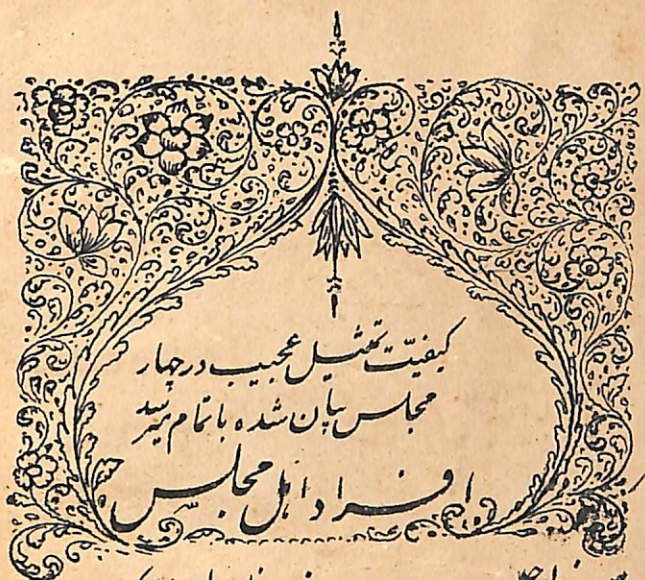 کیفیّت تمثیل عجیب در چهار
مجلس بیان شده باتمام میرسد
افراد اهل مجلس